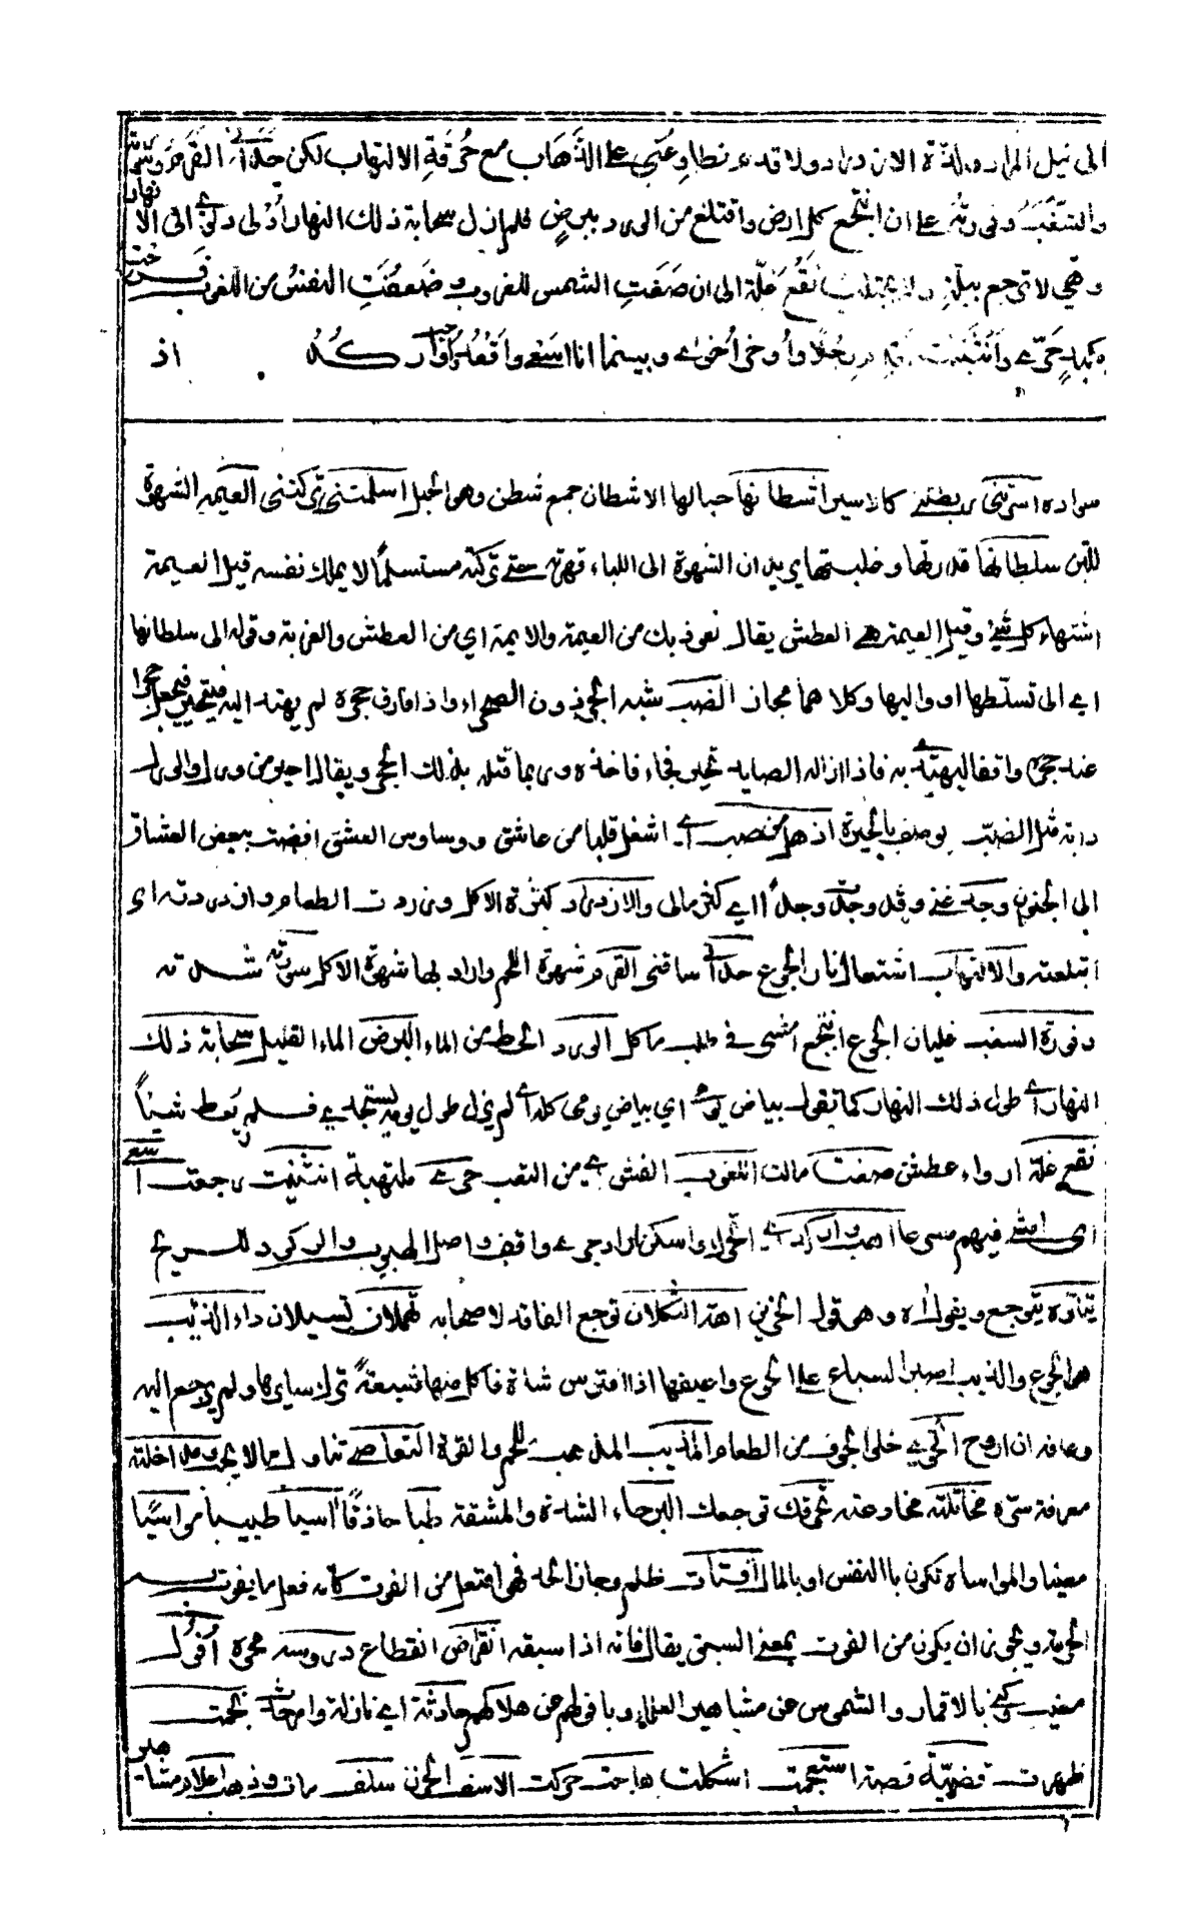 الى نيل المراد ولذة الازدراد ولا قدم تطاوعني على الذهاب مع حُرقة الالتهاب لكن حداني القرم وسورته
والسّغب وفورته على ان انتجع كل ارض واقتنع من الورد ببرض فلم ازل سحابة ذلك النهار اُدلى دلوي الى الانهار
وهي لا ترجع ببلة ولا تجتلب نقع غلّة الى ان صغت الشمس للغروب وضعفت النفس من اللغوب فرحت
بكبد حرّى وانثنيت اقدم رجلا واُوخر اُخرى وبينما انا اسعى واقعد واهب واركد اذ
سواده استرني ربطني كالاسير اشطانها حبالها الاشطان جمع شطن وهو الحبل اسلمتني تركتني العيمه الشهوة
للبن سلطانها قدرتها وغلبتها يريد ان الشهوة الى اللباء قهرته حتى تركته مستسلماً لا يملك نفسه قيل العيمة
اشتهاء كل شئ وقيل العيمة هي العطش يقال نعوذ بك من العيمة والايمة اي من العطش والعزبة وقوله الى سلطانها
اي الى تسلطها او واليها وكلاهما مجاز الضب شبه الجرذون الصحراء واذا فارق جحره لم يهتد اليه فيتحير فيجعل حجرا
عند جحره واقفا ليهتدي به فاذا ازاله الصايد تحير فجاء فاخذه وربما قتله بذلك الحجر ويقال احير من ورل والورل
دابة مثل الضبّ يوصف بالحيرة اذهل من صب اي اشغل قلبا من عاشق ووساوس العشق افضت ببعض العشاق
الى الجنون وجد غنى وقد وجد وجداً اي كثر مالي والازدراد كثرة الاكل وزردت الطعام وازدردته اي
ابتلعته والالتهاب اشتعال نار الجوع حداني ساقني القرم شهوة اللحم واراد بها شهوة الاكل سورته شدته
وفورة السغب غليان الجوع انتجع امشى في طلب ماكل الورد الحظ من الماء البرض الماء القليل سحابة ذلك
النهار اي طول ذلك النهار كما تقول بياض يومي اي بياض يومي كله اي لم يزل طول يومه يستجدي فلم يعط شيئاً
نقع غلة ارواء عطش صغت مالت اللغوب الفشى من التعب حرى ملتهبة انثنيت رجعت اسعى
اي امشي فيهم مسرعا اهب واركد اي اتحرك واسكن واصل الهبوب والركود للريح
يتأوه يتوجع ويقول اه وهو قول الحزين اهة الثكلان توجع الفاقد لاصحابه تهملان تسيلان داء الذئب
هو الجوع والذئب اصبر السباع على الجوع واعيفها اذا افترس شاة فاكل منها شبعة ترك سايرها ولم يرجع اليه
وعافه ان اروح الخوى خلى الجوف من الطعام المذيب المذهب للحم والقوة التعاطي تناول ما لا يجوز اخلته
معرفة سره مخاتلته مخادعته عرقك توجعك البرحاء الشدة والمشقة طبا حاذقاً آسيا طبيبا مواسيًا
معينا والمواساة تكون بالنفس او بالمال افتات ظلم وجاز الحد فهو افتعل من الفوت كأنه فعل ما يفوت
الحرية ويجوز ان يكون من الفوت بمعنى السبق يقال فاته اذا سبقه انقراض انقطاع دروسه محوه اُفول
مغيب كنى بالاقمار والشموس عن مشاهير العلماء وبافولهم عن هلاكهم حادثة اي نازلة وامر نجمت
ظهرت قضية قصة استعجمت اشكلت هاجت حركت الاسف الحزن سلف مات وذهب